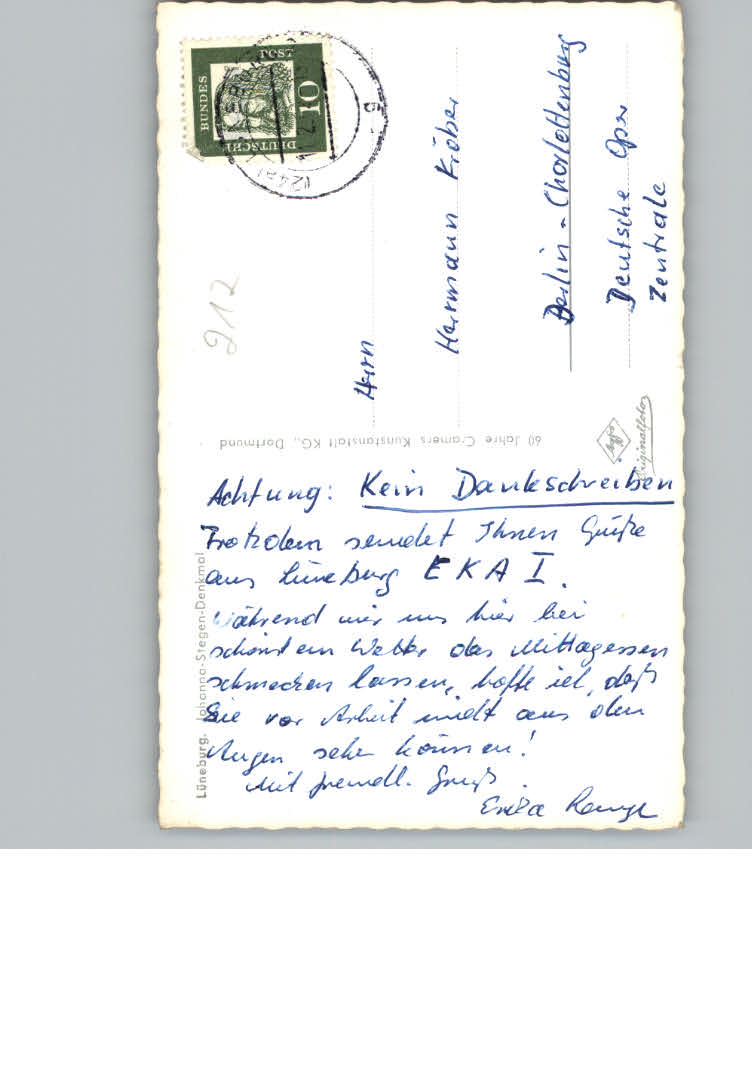 Achtung: Kein Dankschreiben
Trotzdem sendet Ihnen Grüße
aus Lüneburg EKA I.
Während wir uns hier bei
schönstem Wetter das Mittagessen
schmecken lassen, hoffe ich, daß
Sie vor Arbeit nicht aus den
Augen sehen können!
Mit freundl. Gruß
Erika
Lüneburg. Johanna-Stegen-Denkmal
60 Jahre Cramers Kunstanstalt KG., Dortmund
Agfa
Originalfoto
Herrn
Herrmann Kröber
Berlin-Charlottenburg
Deutsche Oper
Zentrale
DEUTSCHE
BUNDES
POST
10
212
(24a)